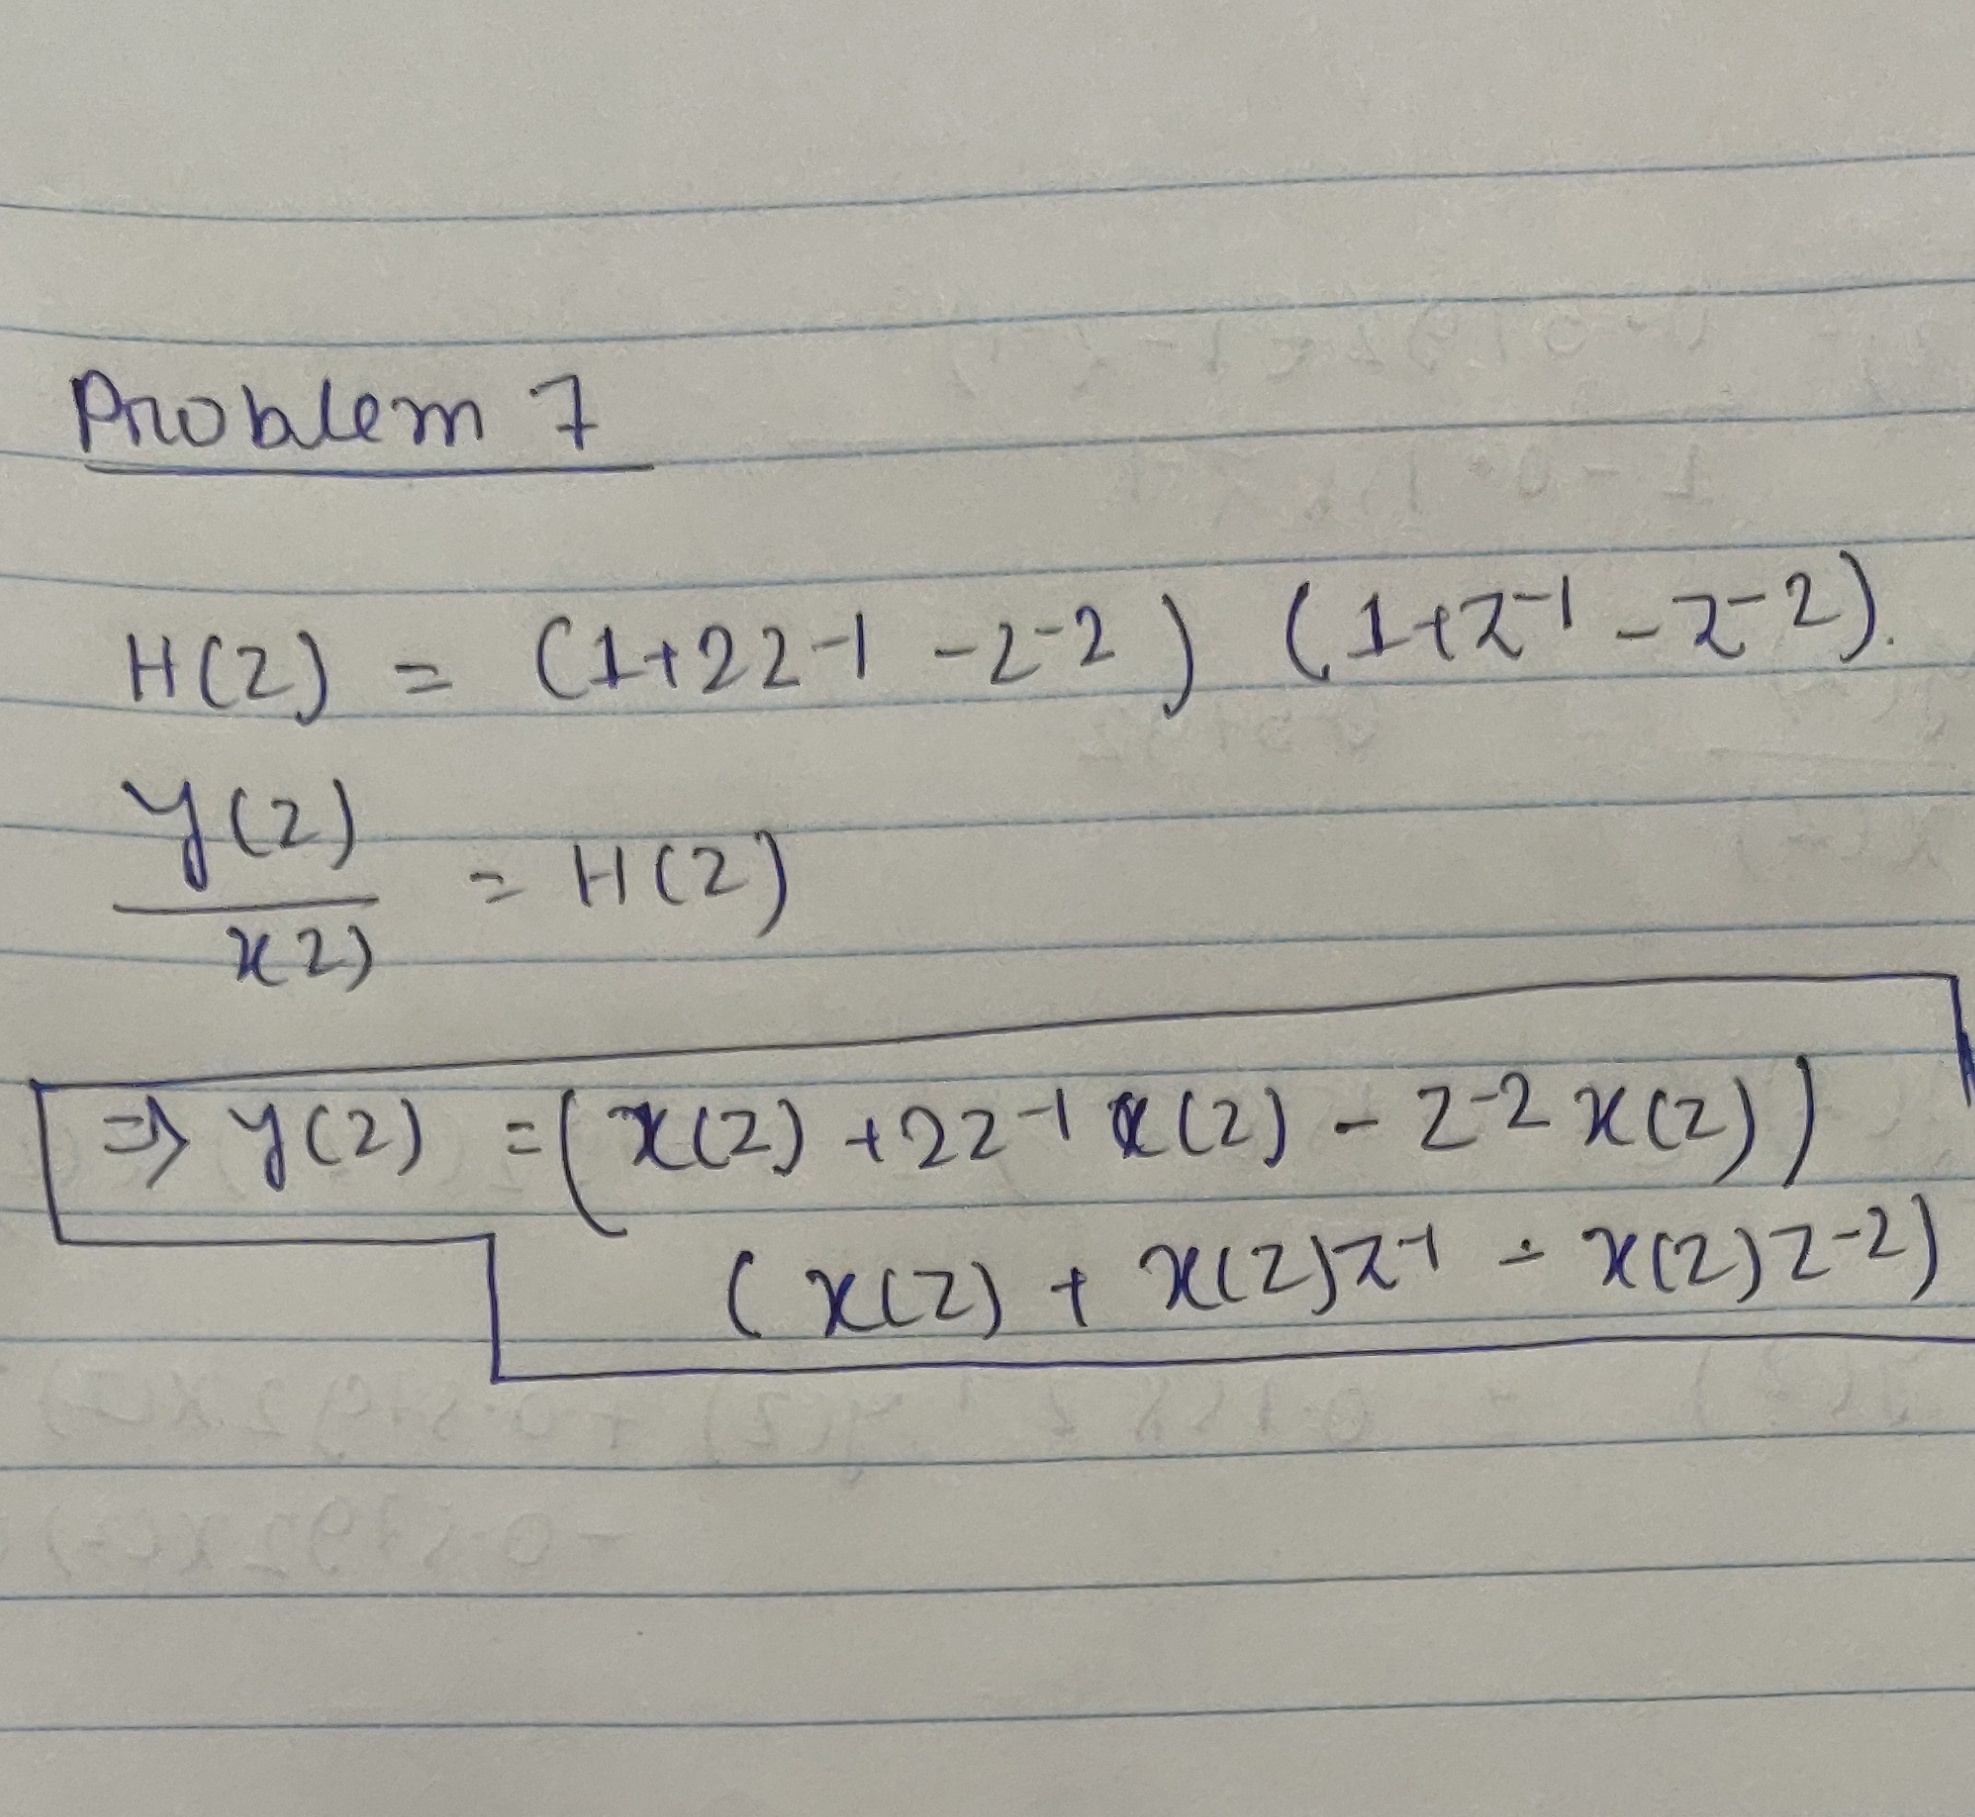 Problem 7
H(z) = (1+2z-1 -z-2) (1+z-1 -z-2).
y(z)
= H(z)
x z)
=> y(z) = (x(z) +2z-1 x(z) - z-2 x(z))
(x(z) + x(z)z-1 - x(z)z-2)